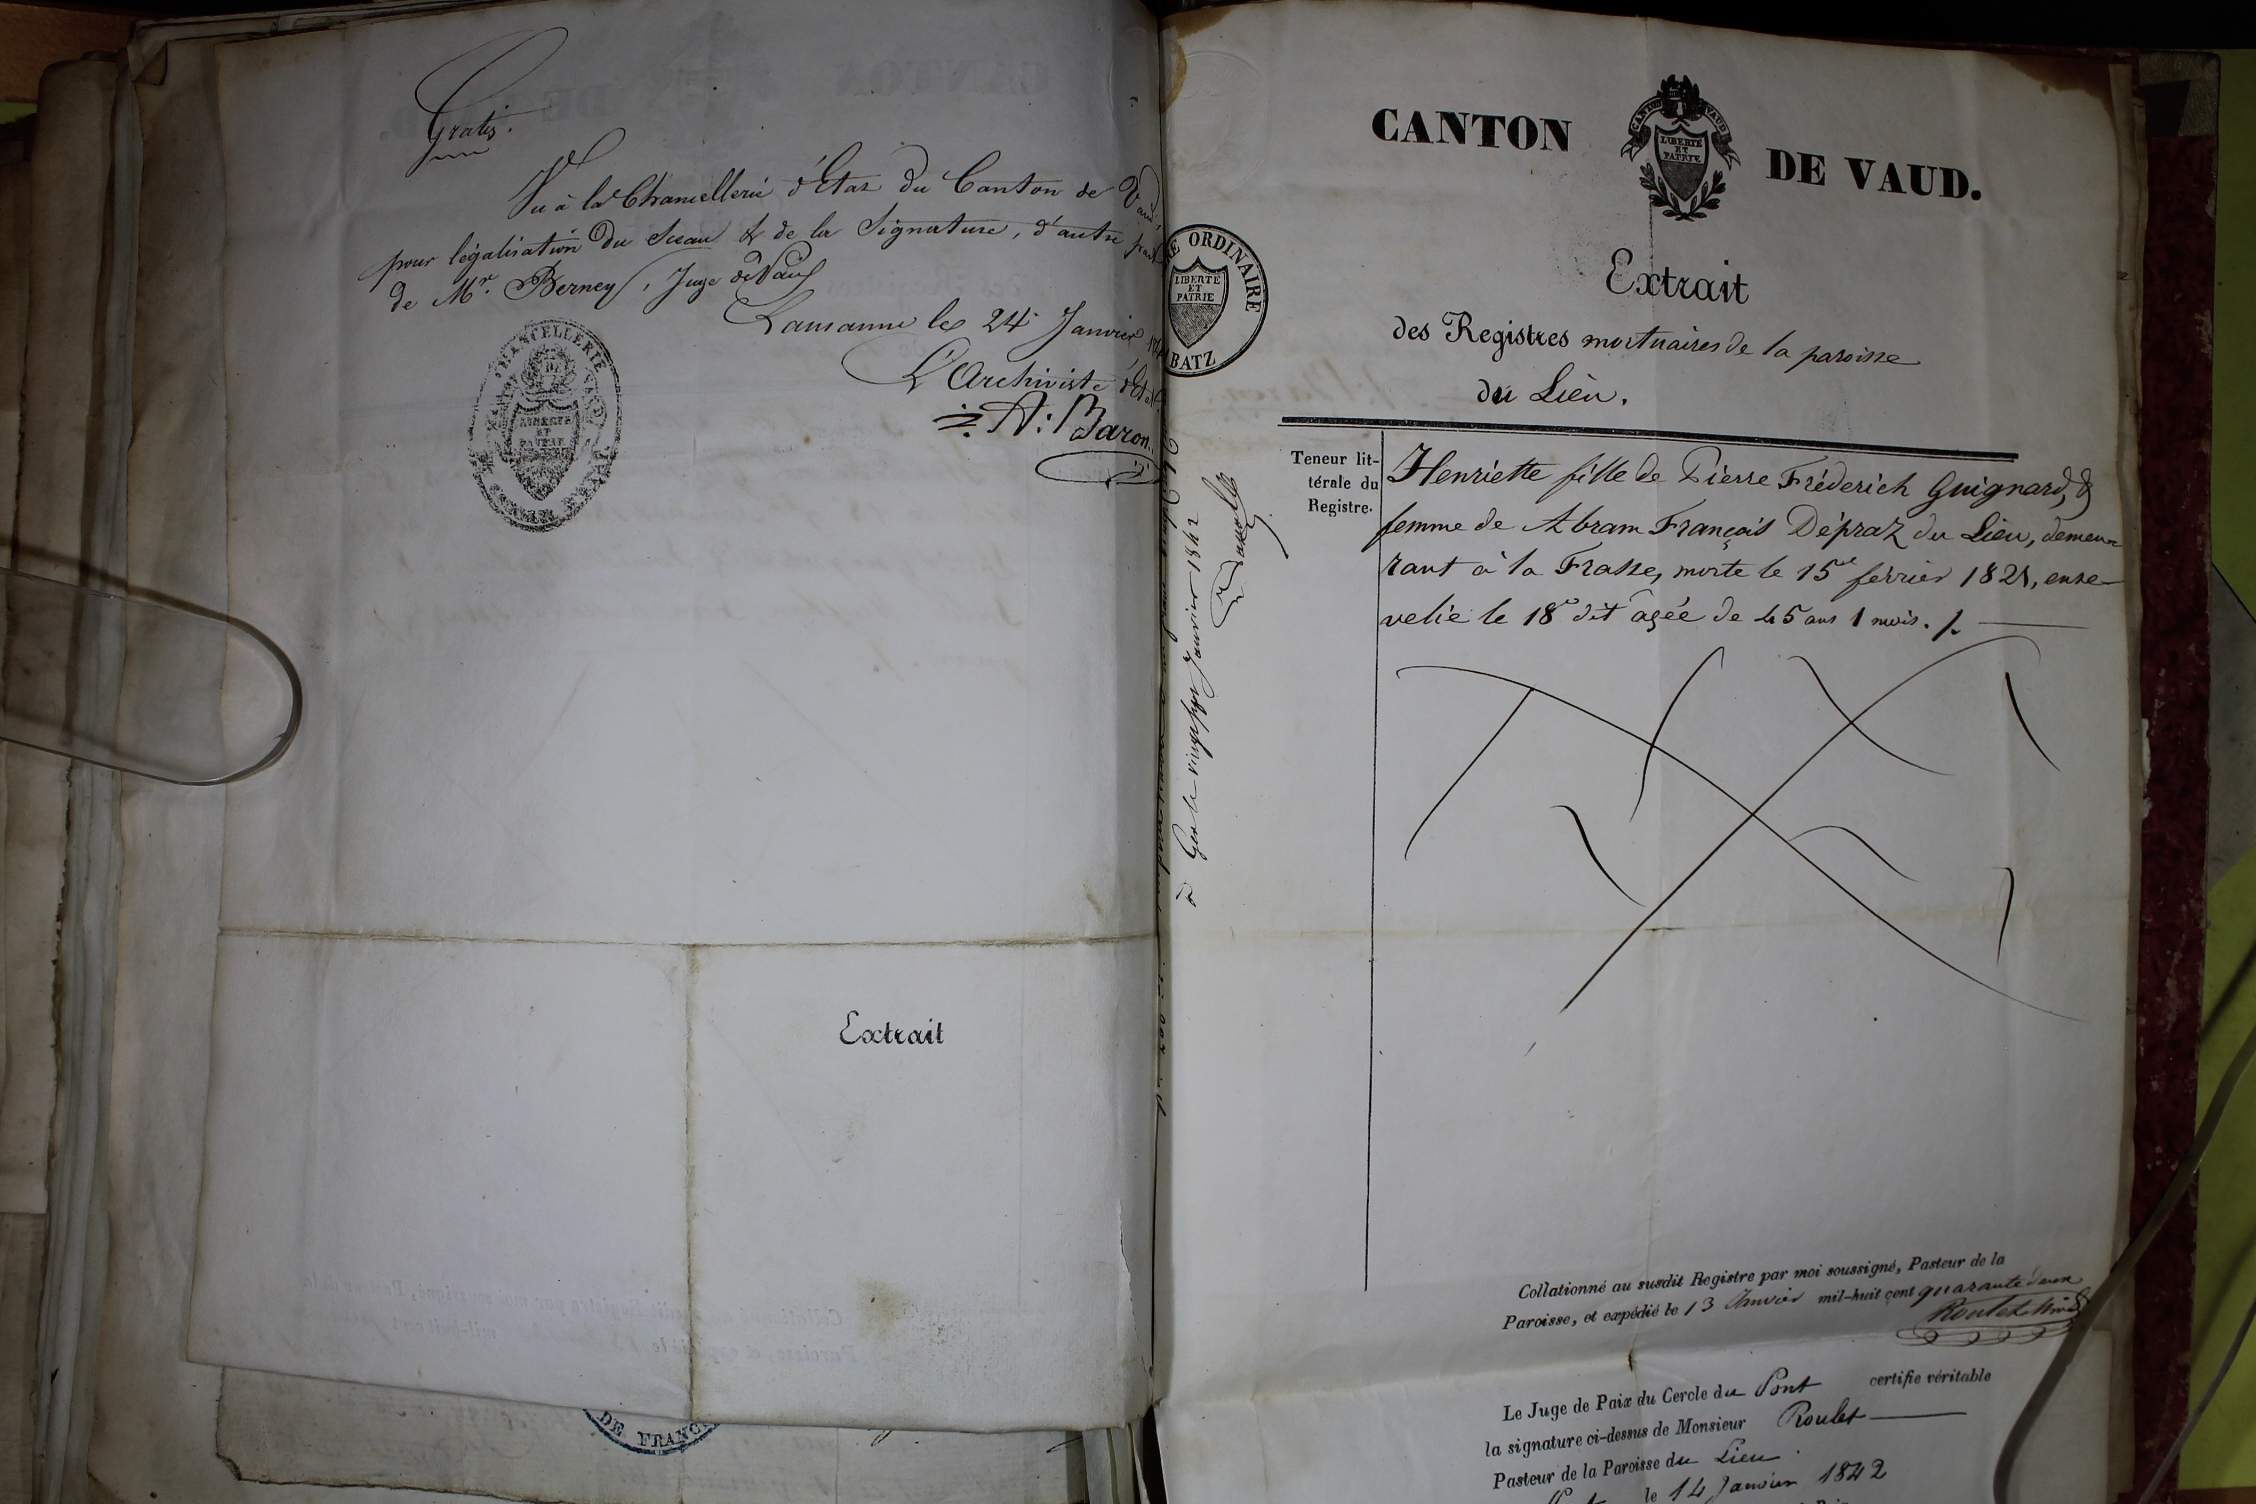 Gratis.
Vu à la Chancellerie d'Etat du Canton de Vaud,
pour légalisation du Sceau & de la Signature, d'autre part
de Mr. Berney, Juge de Paix
Lausanne le 24 Janvier
L'Archiviste d'Etat.
A: Baron.
CHANCELLERIE
LIBERTE
ET
PATRIE
Extrait
DE FRANC
RE ORDINAIRE
LIBERTE
ET
PATRIE
BATZ
Janvier 1842
CANTON DE VAUD.
CANTON VAUD
LIBERTE
ET
PATRIE
Extrait
des Registres mortuaires de la paroisse
du Lieu.
Teneur lit-
térale du
Registre.
Henriette fille de Pierre Fréderich Guignard, &
femme de Abram François Dépraz du Lieu, demeu-
rant à la Frasse, morte le 15e février 1821, ense-
velie le 18e dit agée de 45 ans 1 mois.
Collationné au susdit Registre par moi soussigné, Pasteur de la
Paroisse, et expédié le 13 Janvier mil-huit cent quarante deux
Roulet
Le Juge de Paix du Cercle du Pont certifie véritable
la signature ci-dessus de Monsieur Roulet
Pasteur de la Paroisse du Lieu.
le 14 Janvier 1842